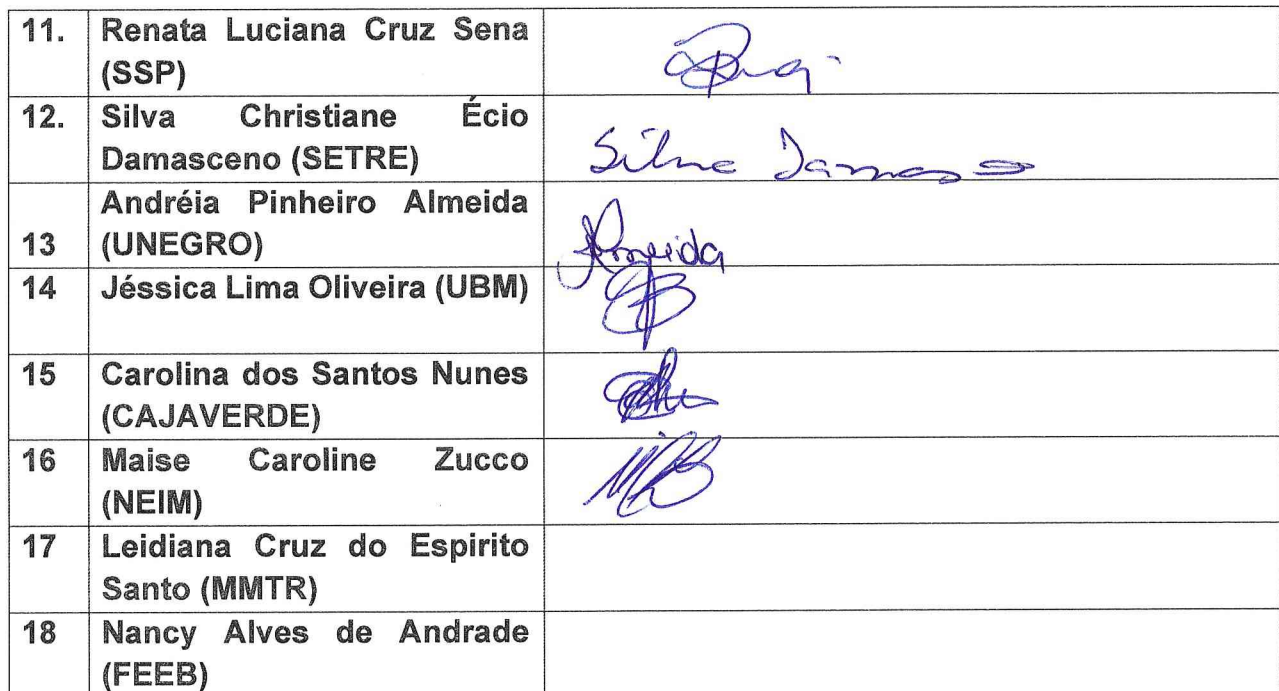 11. Renata Luciana Cruz Sena
(SSP)
12. Silva Christiane Écio
Damasceno (SETRE)
Silva Damas
Andréia Pinheiro Almeida
13 (UNEGRO)
Almeida
14 Jéssica Lima Oliveira (UBM)
15 Carolina dos Santos Nunes
(CAJAVERDE)
16 Maise Caroline Zucco
(NEIM)
17 Leidiana Cruz do Espirito
Santo (MMTR)
18 Nancy Alves de Andrade
(FEEB)